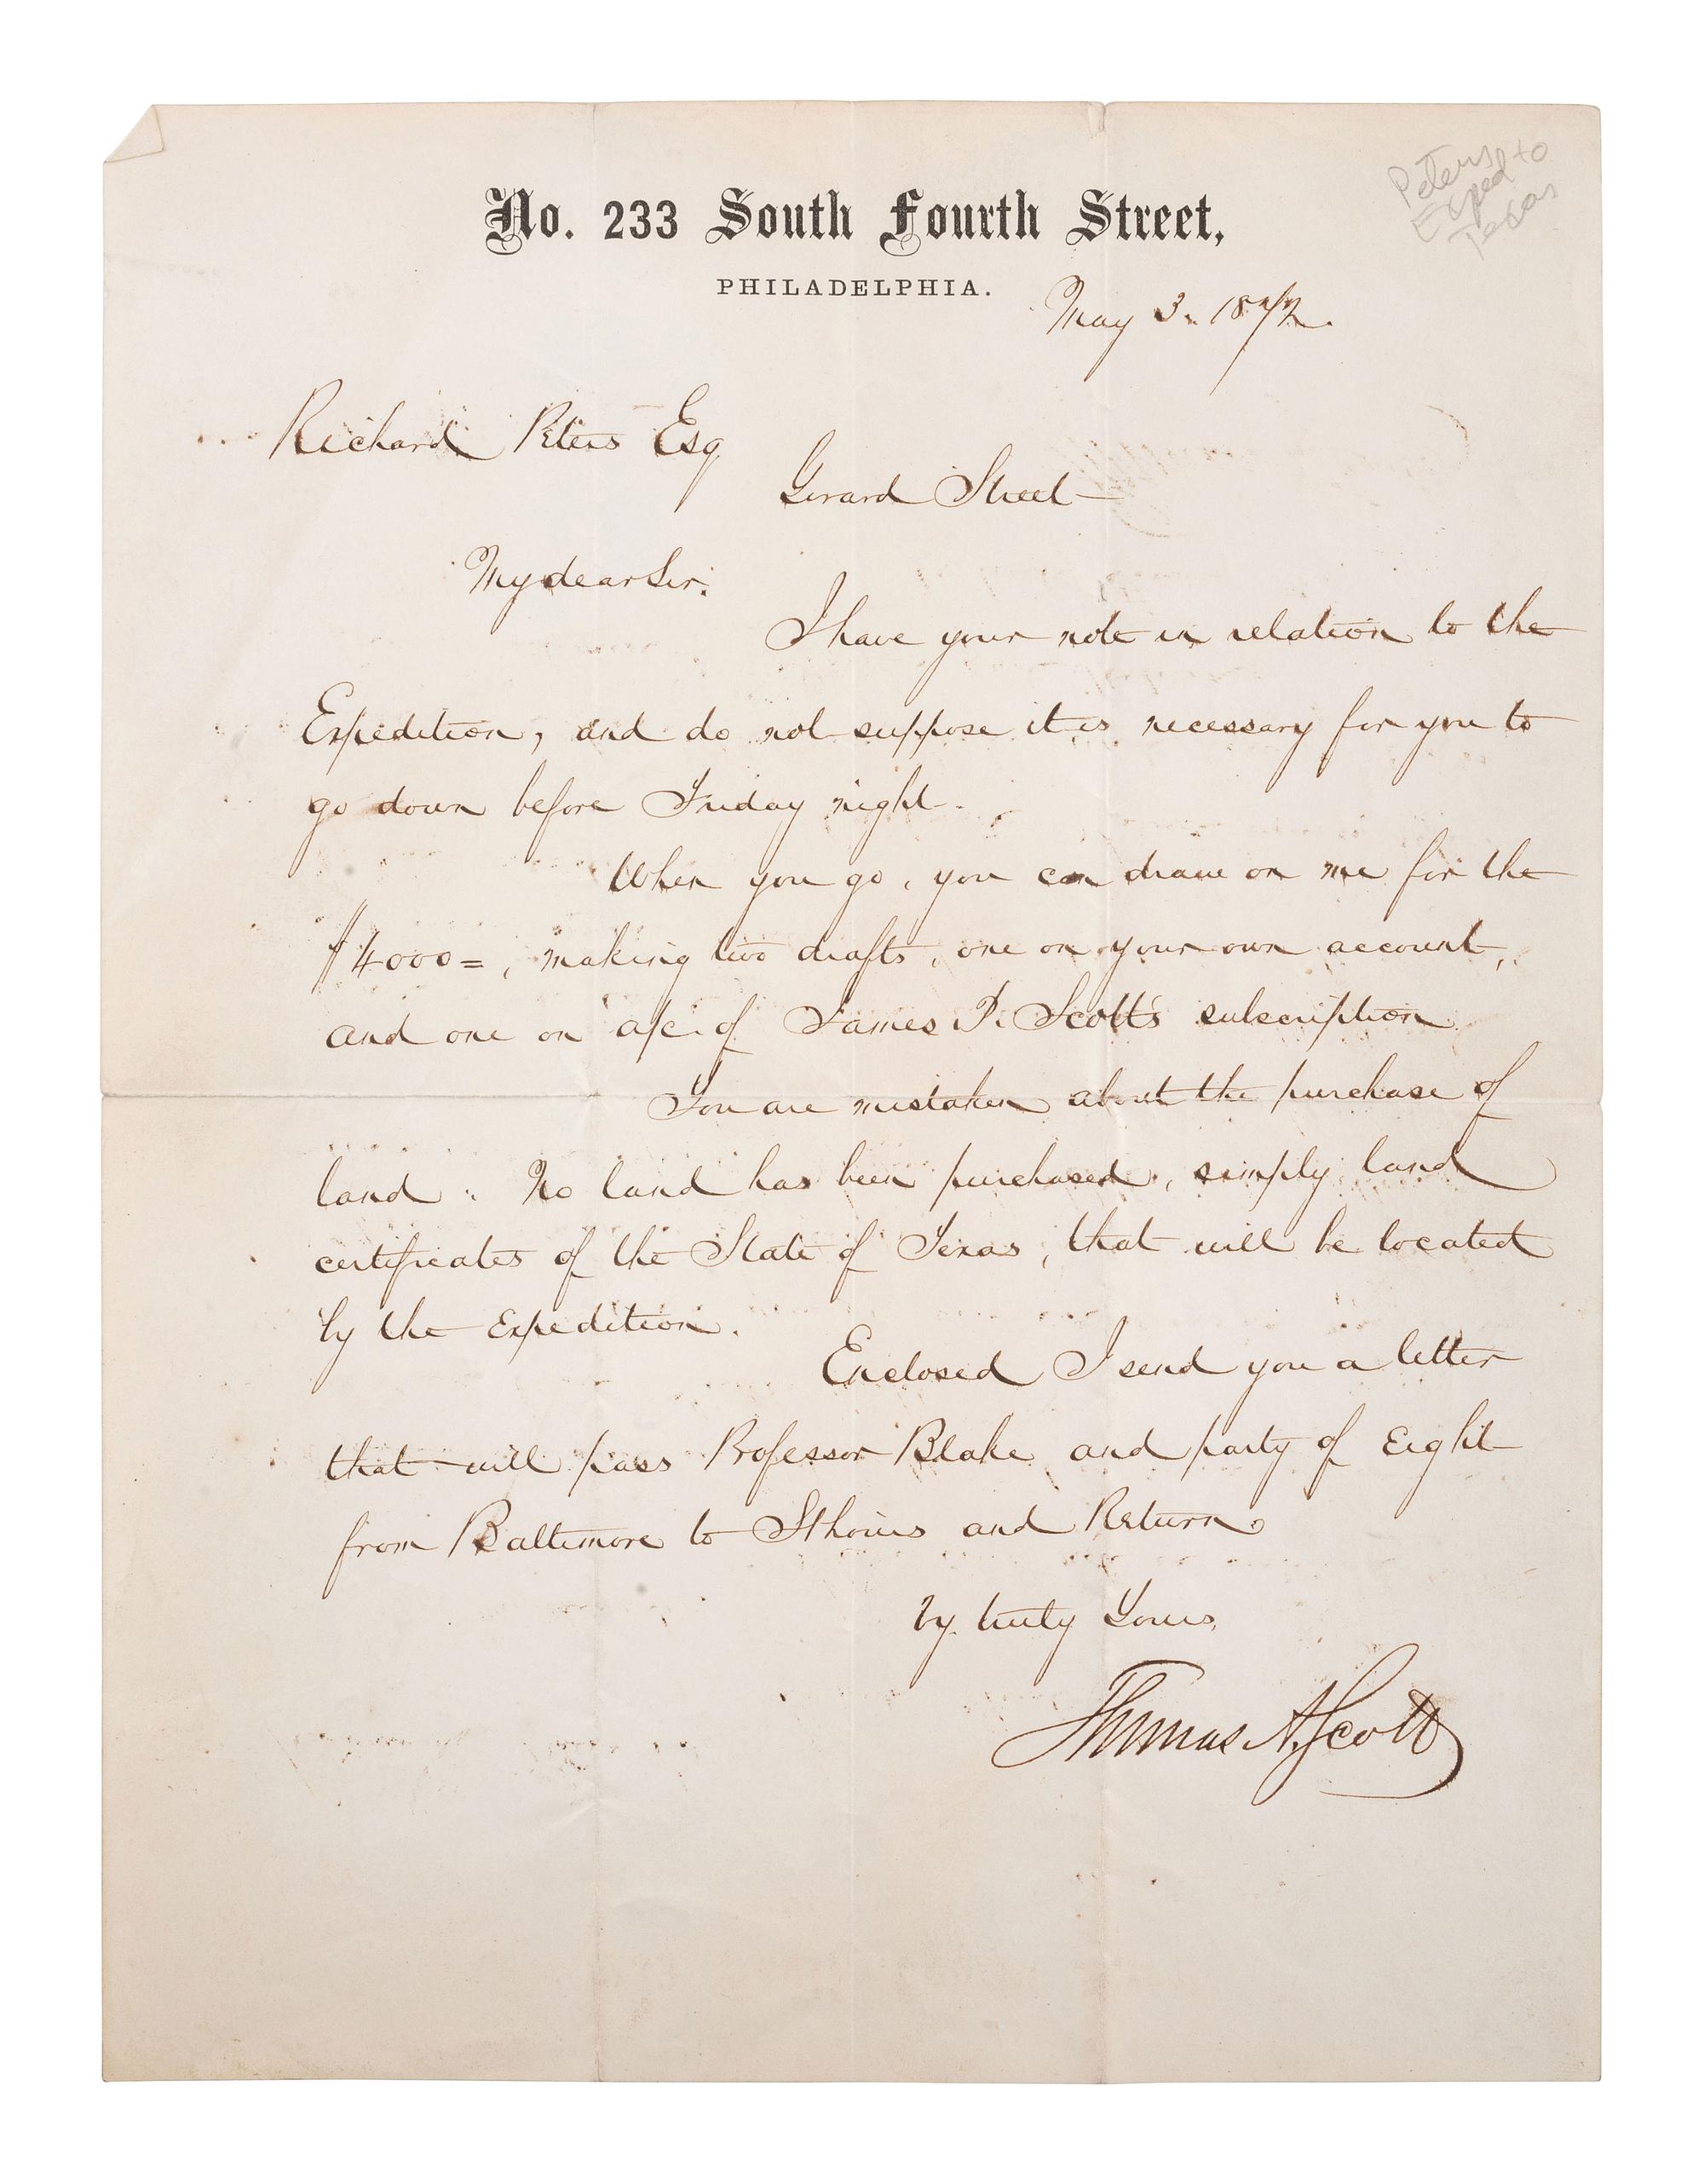 Peters
Exped to
Texas
No. 233 South Fourth Street,
PHILADELPHIA.
May 3. 1872.
Richard Peters Esq
Girard Street
My dear Sir.
I have your note in relation to the
Expedition, and do not suppose it is necessary for you to
go down before Friday night.
When you go, you can draw on me for the
$4000=, making two drafts, one on your own account,
and one on a/c. of James P. Scott's subscription
You are mistaken about the purchase of
land. No land has been purchased, simply land
certificates of the State of Texas, that will be located
by the Expedition.
Enclosed I send you a letter
that will pass Professor Blake and party of Eight
from Baltimore to St Louis and Return.
Vy truly Yours,
Thomas A. Scott